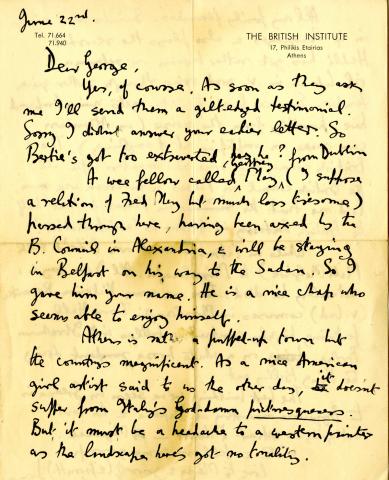 June 22nd.
Tel. 71.664
71.940
THE BRITISH INSTITUTE
17, Philikis Etairias
Athens
Dear George,
Yes, of course. As soon as they ask
me I'll send them a gilt-edged testimonial.
Sorry I didn't answer your earlier letter. So
Bertie's got too extroverted, has he?
A wee fellow called Geoffrey Play, from Dublin (I suppose
a relation of Fred Play but much less tiresome)
passed through here, having been axed by the
B. Council in Alexandria, & will be staying
in Belfast on his way to the Sudan. So I
gave him your name. He is a nice chap who
seems able to enjoy himself.
Athens is rather a puffed-up town but
the country's magnificent. As a nice American
girl artist said to us the other day, it doesn't
suffer from Italy's Goddamn picturesqueness.
But it must be a headache to a western painter
as the landscape here's got no tonality.